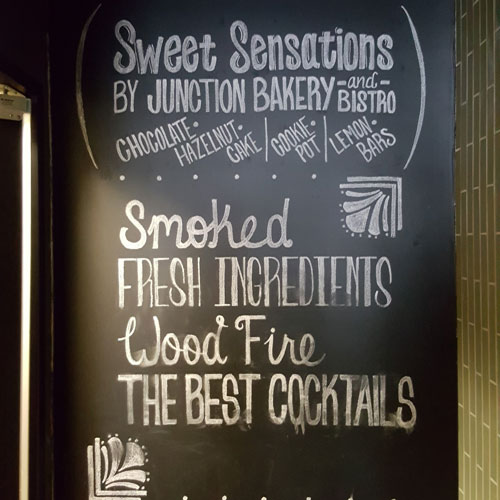 Sweet Sensations
BY JUNCTION BAKERY -and- BISTRO
CHOCOLATE • HAZELNUT • CAKE / COOKIE • POT / LEMON • BARS
Smoked
FRESH INGREDIENTS
Wood Fire
THE BEST COCKTAILS